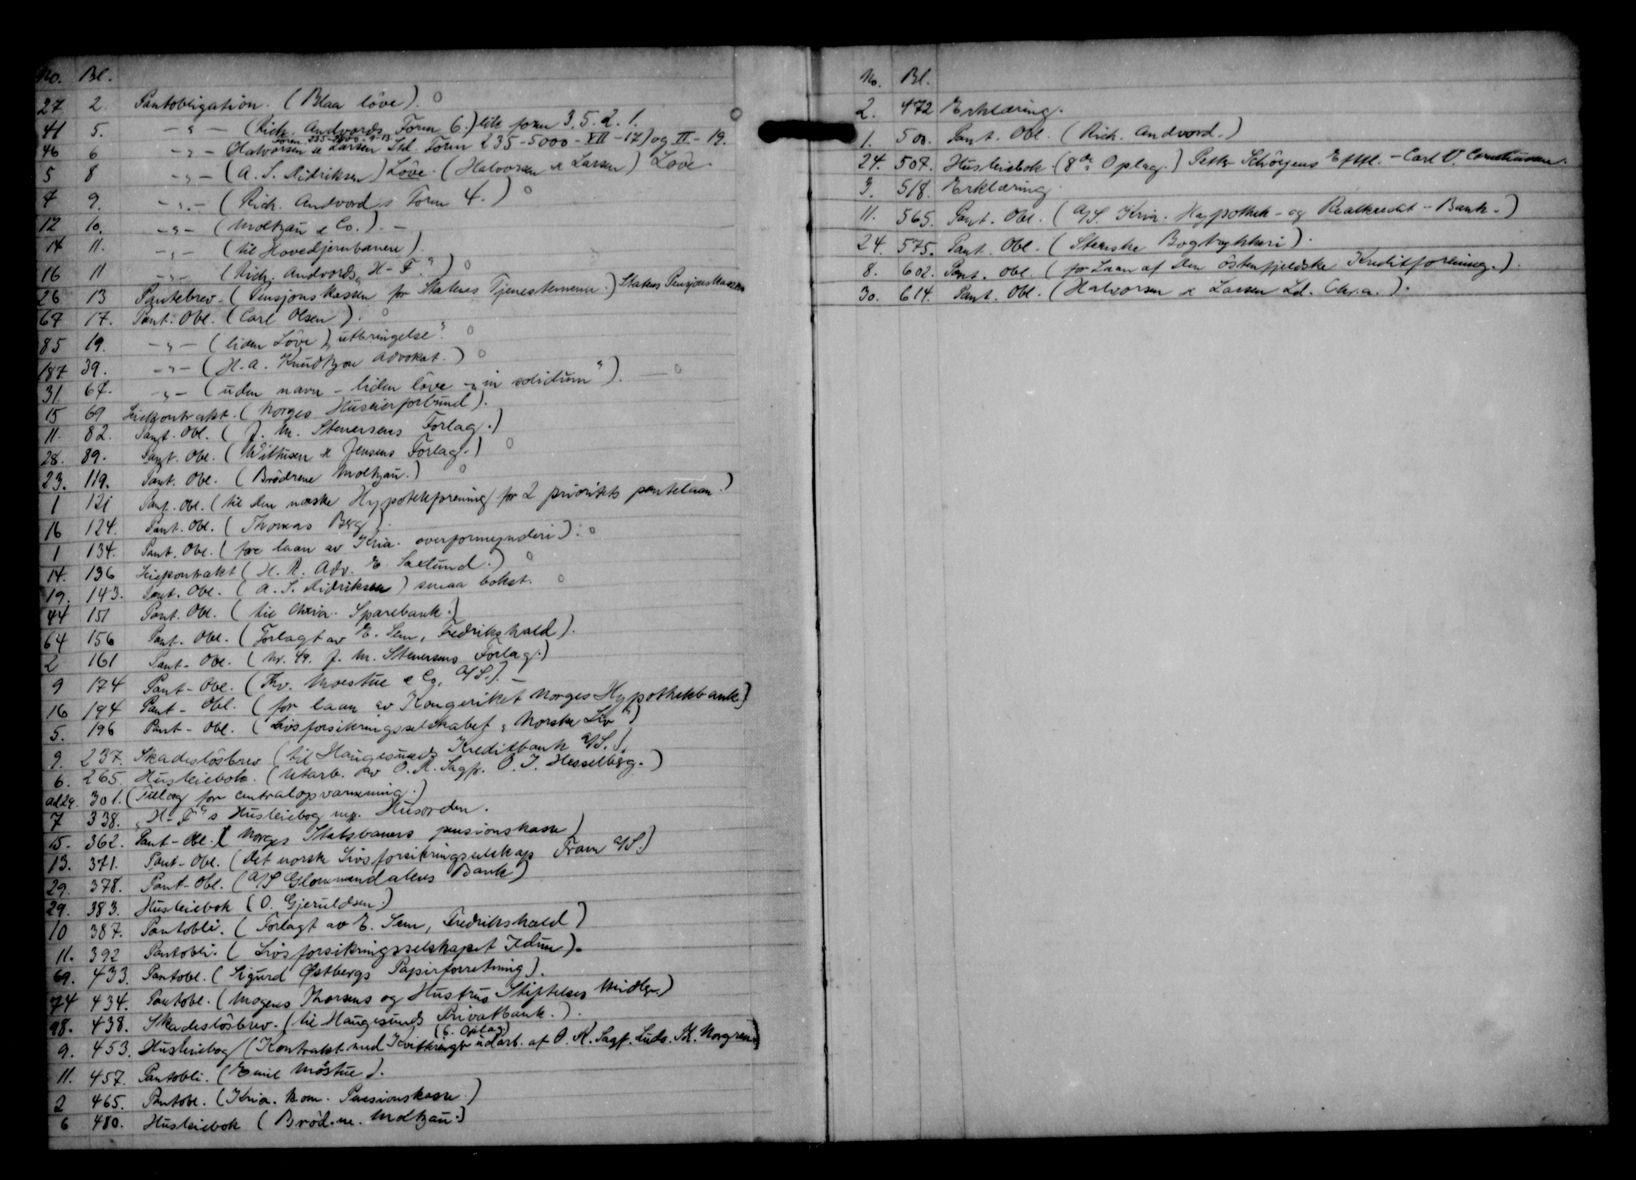 No. Bl.
27 2. Pantobligation. (Blaa löve). o
41 5. -"- (Rich. Andvords Form 6.) lik form 3. 5. 2. 1.
46 6 -"- (Halvorsen & Larsen Ltd. Form 235-5000-XII-17) og II-19.
5 8 -"- (A. S. Didriksen) Löve. (Halvorsen & Larsen) Löve
7 9. -"- (Rich. Andvord's Form 4.) o
12 10. -"- (Moltzau & Co.). -
14 11. -"- (til Hovedjernbanen).
16 11 -"- (Rich. Andvords "H-F.") o
26 13 Pantebrev. (Pensjonskassen for Statens Tjenestemenn.) Statens Pensjonskasse
67 17. Pant. Obl. (Carl Olsen). o
85 19. -"- (liden Löve) "utbringelse". o
187 39. -"- (H. A. Knudtzon Advokat.) o
31. 67. -"- (uden navn - liden löve - "in solidum"). - o
15 69 Leiekontrakt. (Norges Huseierforbund).
11. 82. Pant. Obl. (J. M. Stenersens Forlag.)
28. 89. Pant. Obl. (Withusen & Jensens Forlag.) o
23. 119. Pant. Obl. (Brödrene Moltzau.) o
1 121 Pant. Obl. (til Den norske Hypotekforening for 2 prioritets pantelaan.)
16 124. Pant. Obl. (Thomas Berg).
1 134. Pant. Obl. (for laan av Kria. overformynderi). o
14. 136 Leiekontrakt (H. R. Adv. E. Saxlund.) o
19. 143. Pant. Obl. (A. S. Didriksen) smaa bokst. o
44 151 Pant. Obl. (til Chria. Sparebank.)
64 156 Pant. Obl. (Forlagt av E. Sem, Fredrikshald).
2 161 Pant-Obl. (Nr. 49. J. M. Stenersens Forlag.)
9 174 Pant-Obl. (Thv. Moestue & Co. A/S.). -
16 194 Pant-Obl. (for laan av Kongeriket Norges Hypothekbank)
5. 196 Pant-Obl. (Livsforsikringsselskabet "Norske Liv")
9. 237. Skadeslösbrev (til Haugesunds Kreditbank A/S.).
6. 265. Husleiebok. (Utarb. av O. R. Sagf. O. J. Hesselberg.)
ad 29. 301. (Tillæg for centralopvarmning.)
7 338. "H-F"s Husleiebog m. Husorden.
15. 362. Pant-Obl. (Norges Statsbaners pensionskasse)
13. 371. Pant-Obl. (Det norske Livsforsikringsselskap Fram A/S.)
29. 378. Pant-Obl. (A/S Glommendalens Bank)
29. 383. Husleiebok (O. Gjeruldsen.)
10 387. Pantobli. (Forlagt av E. Sem, Fredrikshald)
11. 392 Pantobli. (Livsforsikringsselskapet Idun).
69. 433. Pantobl. (Sigurd Østbergs Papirforretning).
74 434. Pantobl. (Mogens Thorsens og Hustrus Stiftelses Midler)
98. 438. Skadeslösbrev. (til Haugesunds Privatbank.).
9. 453. Husleiebog (Kontrakt med Kvitteringer (6. Oplag) udarb. af O. R. Sagf. Ludv. M. Norgren)
11. 457. Pantobli. (Emil Möstue).
2 465. Pantobl. (Kria. kom. Pensionskasse)
6 480. Husleiebok (Bröd.ne. Moltzau.)
No. Bl.
2. 472 Erklæring.
1. 500. Pant. Obl. (Rich. Andvord.)
24. 507. Husleiebok (8de Oplag.) Petter Schörgens Eftfl. - Carl V.
3. 518. Erklæring.
11. 565. Pant. Obl. (A/S. Kria. Hypothek- og Realkredit-Bank.)
24. 575. Pant. Obl. (Steenske Bogtrykkeri).
8. 602. Pant. Obl. (for Laan af Den østenfjeldske Kreditforening.).
30. 614. Pant. Obl. (Halvorsen & Larsen Ld. Chr.a.).